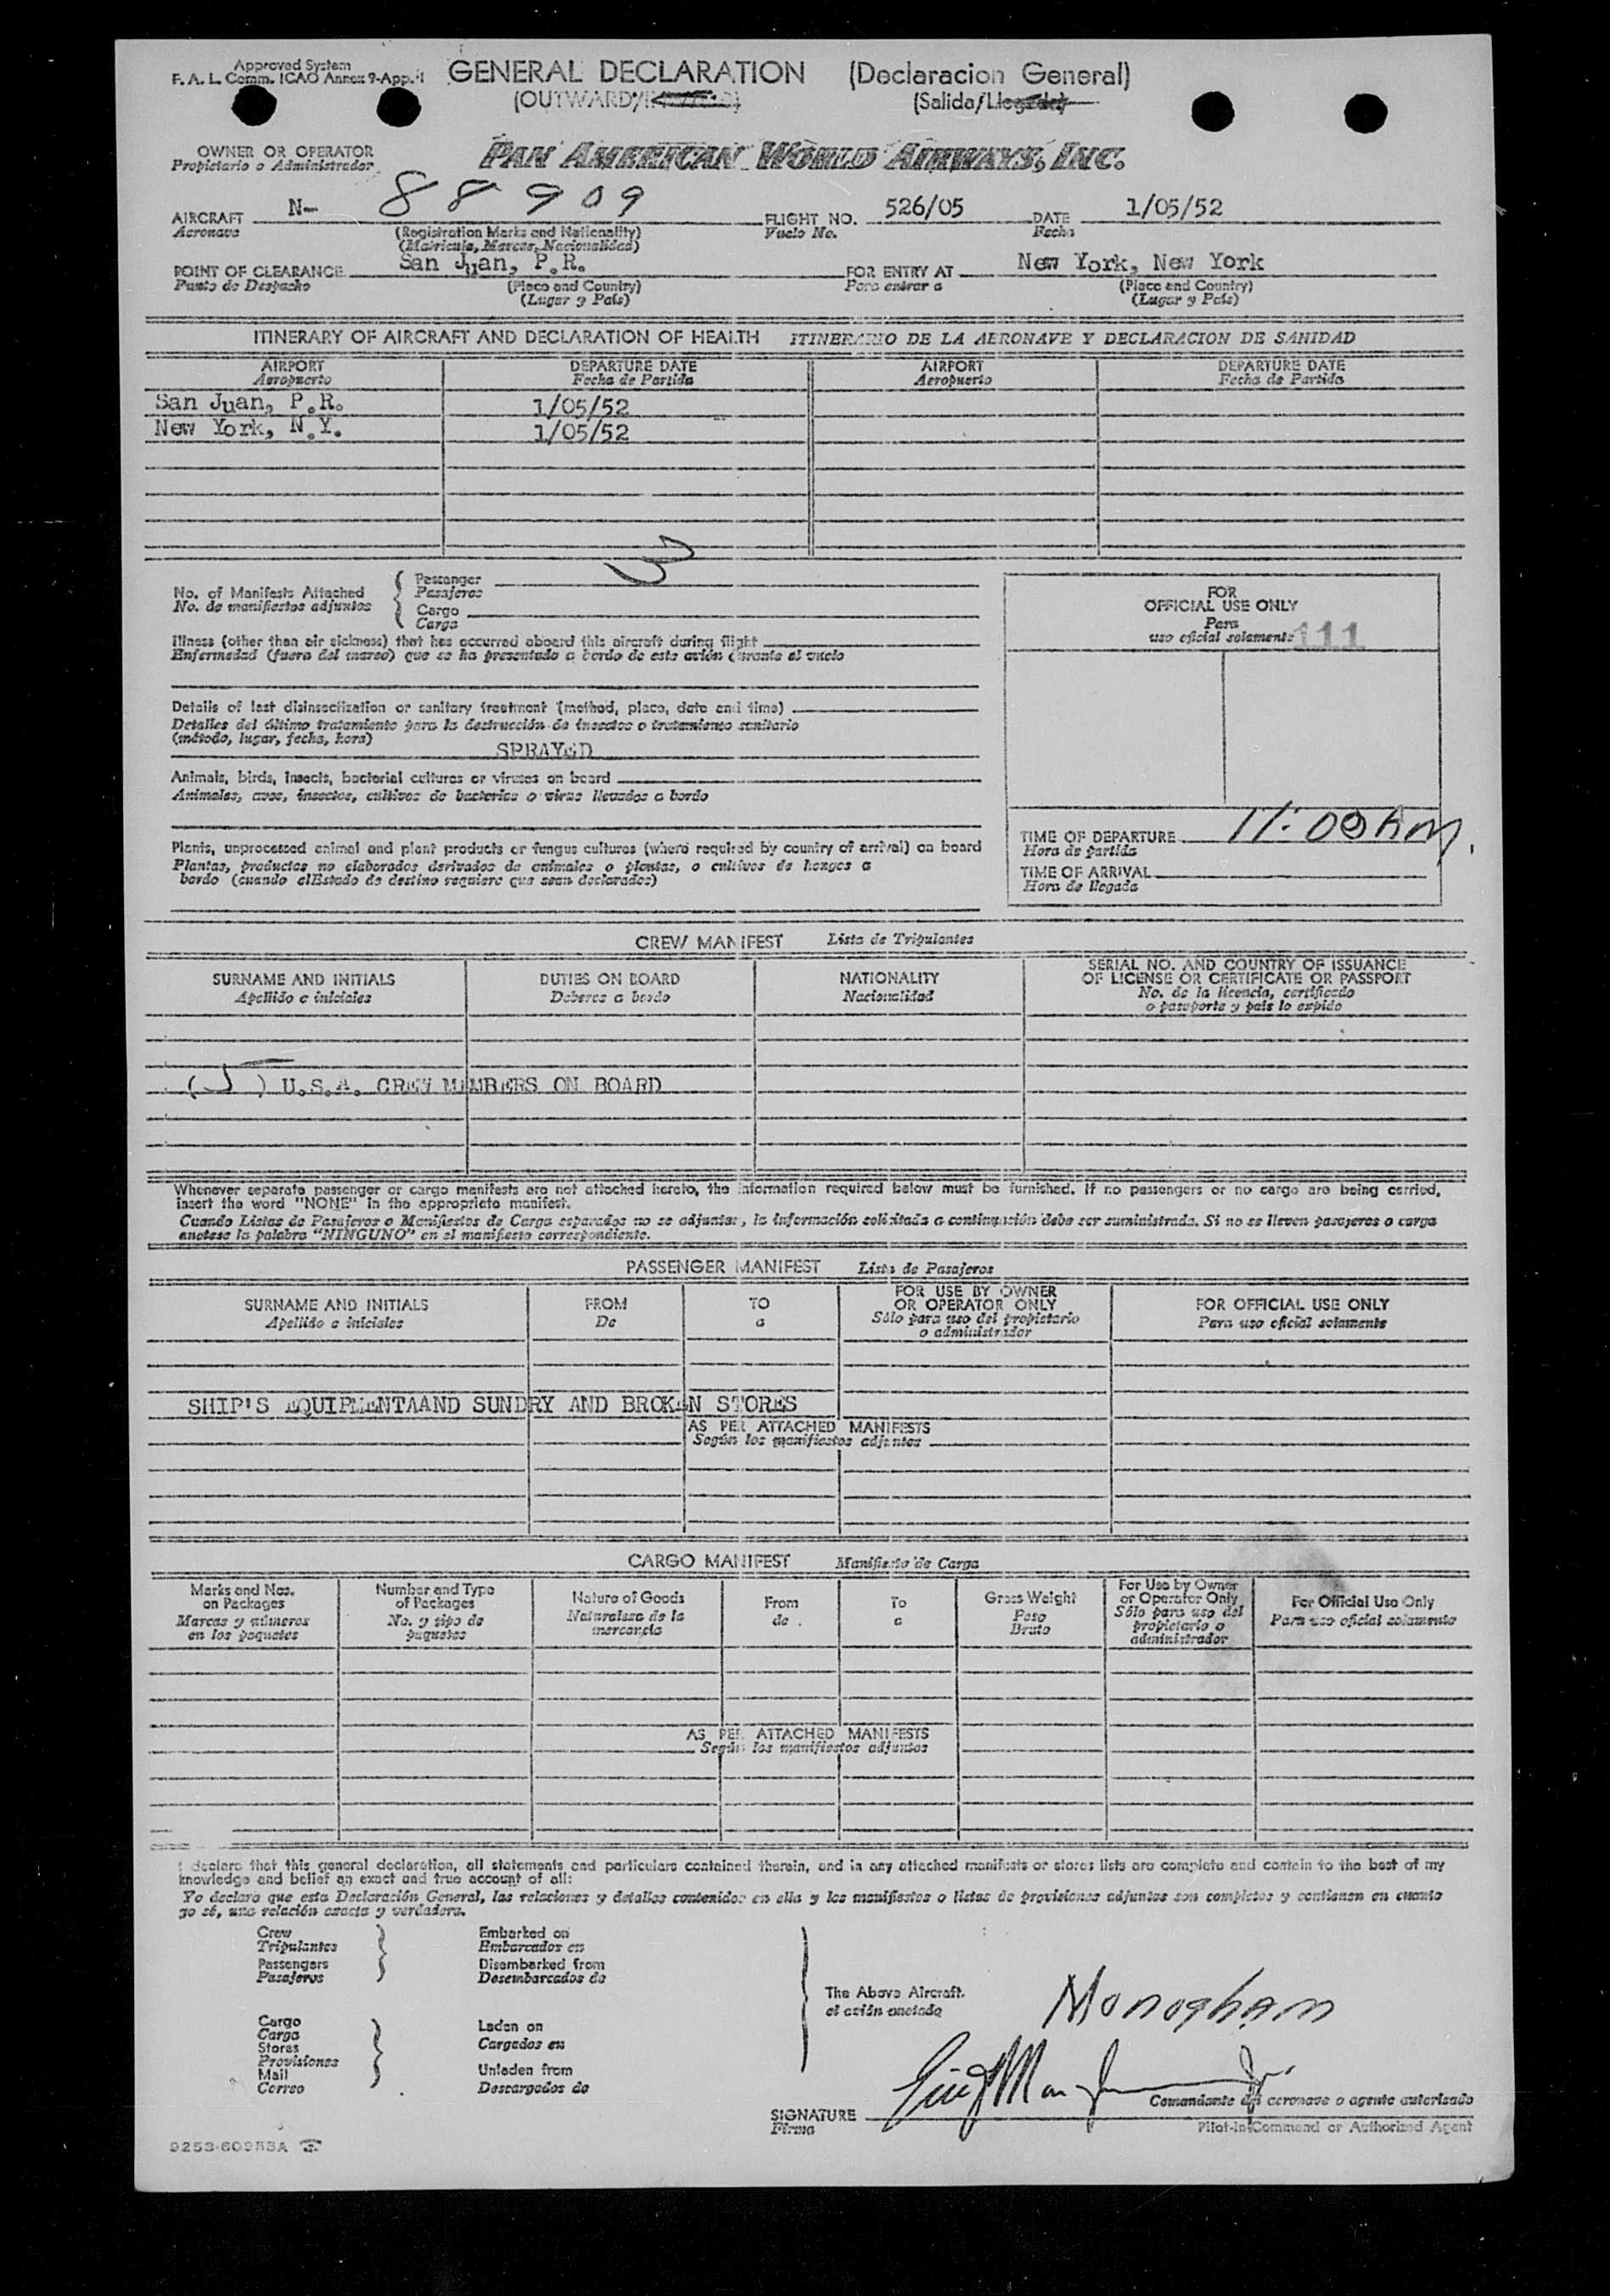 Approved System
F. A. L. Comm. ICAO Annex 9-App. 1
GENERAL DECLARATION (Declaracion General)
(OUTWARD/INWARD) (Salida/Llegada)
OWNER OR OPERATOR
Propietario o Administrador
PAN AMERICAN WORLD AIRWAYS, INC.
AIRCRAFT N- 88909 FLIGHT NO. 526/05 DATE 1/05/52
Aeronave (Registration Marks and Nationality) Vuelo No. Fecha
(Matricula, Marcas, Nacionalidad)
POINT OF CLEARANCE San Juan, P.R. FOR ENTRY AT New York, New York
Punto de Despacho (Place and Country) Para entrar a (Place and Country)
(Lugar y País) (Lugar y País)
ITINERARY OF AIRCRAFT AND DECLARATION OF HEALTH ITINERARIO DE LA AERONAVE Y DECLARACION DE SANIDAD
AIRPORT DEPARTURE DATE AIRPORT DEPARTURE DATE
Aeropuerto Fecha de Partida Aeropuerto Fecha de Partida
San Juan, P.R. 1/05/52
New York, N.Y. 1/05/52
No. of Manifests Attached
No. de manifiestos adjuntos
Passenger 3
Pasajeros
Cargo
Carga
Illness (other than air sickness) that has occurred aboard this aircraft during flight
Enfermedad (fuera del mareo) que se ha presentado a bordo de este avión durante el vuelo
Details of last disinsectization or sanitary treatment (method, place, date and time)
Detalles del último tratamiento para la destrucción de insectos o tratamiento sanitario
(método, lugar, fecha, hora)
SPRAYED
Animals, birds, insects, bacterial cultures or viruses on board
Animales, aves, insectos, cultivos de bacterias o virus llevados a bordo
Plants, unprocessed animal and plant products or fungus cultures (where required by country of arrival) on board
Plantas, productos no elaborados derivados de animales o plantas, o cultivos de hongos a
bordo (cuando elEstado de destino requiere que sean declarados)
FOR
OFFICIAL USE ONLY
Para
uso oficial solamente 111
TIME OF DEPARTURE 11:00 Am.
Hora de partida
TIME OF ARRIVAL
Hora de llegada
CREW MANIFEST Lista de Tripulantes
SURNAME AND INITIALS DUTIES ON BOARD NATIONALITY SERIAL NO. AND COUNTRY OF ISSUANCE
OF LICENSE OR CERTIFICATE OR PASSPORT
Apellido e iniciales Deberes a bordo Nacionalidad No. de la licencia, certificado
o pasaporte y país lo expido
(5) U.S.A. CREW MEMBERS ON BOARD
Whenever separate passenger or cargo manifests are not attached hereto, the information required below must be furnished. If no passengers or no cargo are being carried,
insert the word "NONE" in the appropriate manifest.
Cuando Listas de Pasajeros o Manifiestos de Carga separados no se adjuntan, la información solicitada a continuación debe ser suministrada. Si no se lleven pasajeros o carga
anotese la palabra "NINGUNO" en el manifiesto correspondiente.
PASSENGER MANIFEST Lista de Pasajeros
SURNAME AND INITIALS FROM TO FOR USE BY OWNER
OR OPERATOR ONLY FOR OFFICIAL USE ONLY
Apellido e iniciales De a Sólo para uso del propietario
o administrador Para uso oficial solamente
SHIP'S EQUIPMENTAAND SUNDRY AND BROKEN STORES
AS PER ATTACHED MANIFESTS
Según los manifiestos adjuntos
CARGO MANIFEST Manifiesto de Carga
Marks and Nos.
on Packages
Marcas y números
en los paquetes
Number and Type
of Packages
No. y tipo de
paquetes
Nature of Goods
Naturaleza de la
mercancía
From
de
To
a
Gross Weight
Peso
Bruto
For Use by Owner
or Operator Only
Sólo para uso del
propietario o
administrador
For Official Use Only
Para uso oficial solamente
AS PER ATTACHED MANIFESTS
Según los manifiestos adjuntos
I declare that this general declaration, all statements and particulars contained therein, and in any attached manifests or stores lists are complete and contain to the best of my
knowledge and belief an exact and true account of all:
Yo declaro que esta Declaración General, las relaciones y detalles contenidos en ella y los manifiestos o listas de provisiones adjuntos son completos y contienen en cuanto
yo sé, una relación exacta y verdadera.
Crew
Tripulantes
Passengers
Pasajeros
Embarked on
Embarcados en
Disembarked from
Desembarcados de
Cargo
Carga
Stores
Provisiones
Mail
Correo
Laden on
Cargados en
Unladen from
Descargados de
The Above Aircraft.
el avión anotado
Monogham
SIGNATURE
Firma
Comandante del aeronave o agente autorizado
Pilot-in-Command or Authorized Agent